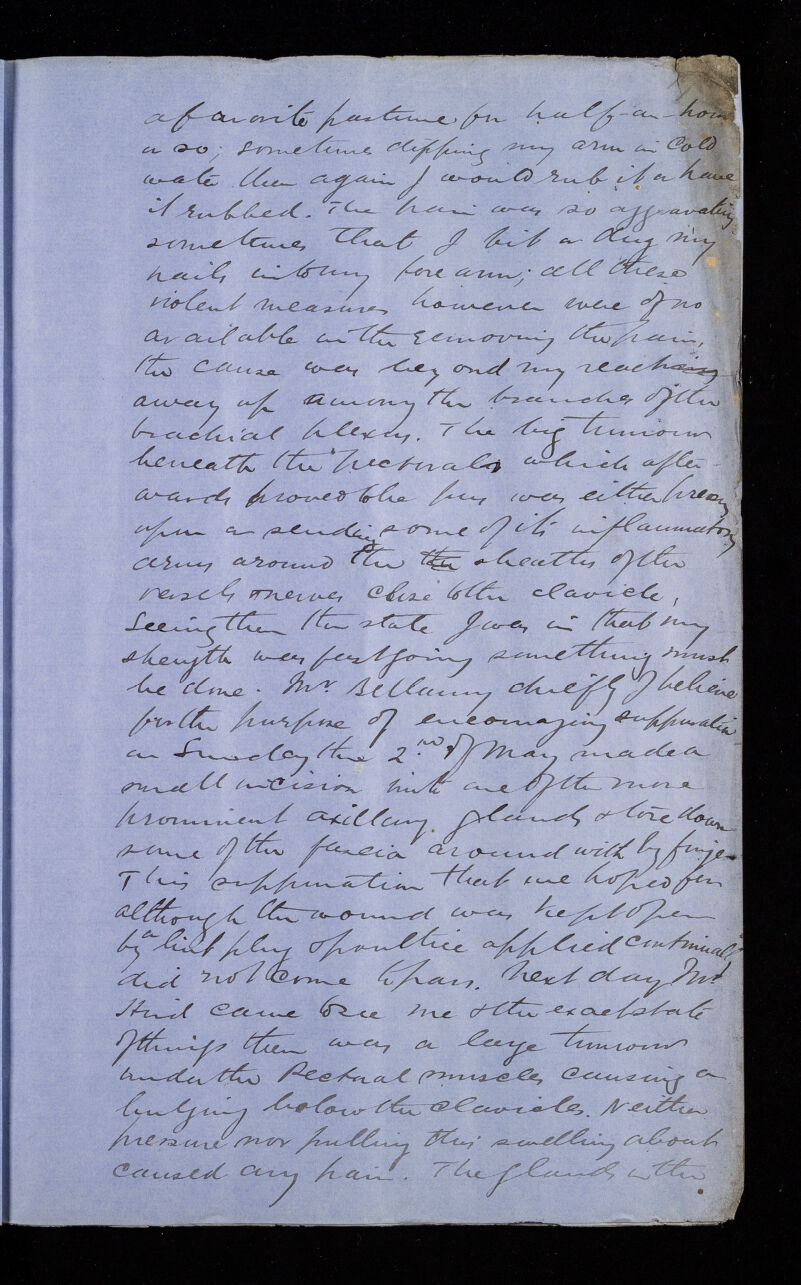 a favorite pastime for half-an-hour
or so; sometimes dipping my arm in cold
water then again I would rub it or have
it rubbed. The pain was so aggravating
sometimes that I bit or dug my
nails into my fore arm; all these
violent measures however were of no
available in the removing the pain,
the cause was beyond my reach
away up among the branches of the
brachial plexus. The big tumour
beneath the pectorals which after-
wards proved to be pus was either pressing
upon or sending some of its inflammatory
arms around the the sheaths of the
vessels & nerves close to the clavicle,
Seeing then the state I was in that my
strength was fast going something must
be done. Mr. Bellamy chiefly I believe
for the purpose of encouraging suppuration
on Sunday the 2nd of May made a
small incision into one of the more
prominent axillary glands & tore down
some of the fascia around with by finger
This suppuration that we hoped for
although the wound was kept open
by a lint plug & poultice applied continually
did not come to pass. Next day Mr
Hird came to see me & the exact state
of things then was a large tumour
under the Pectoral muscles causing a
bulging below the clavicles. Neither
pressure nor pulling this swelling about
caused any pain. The glands in the